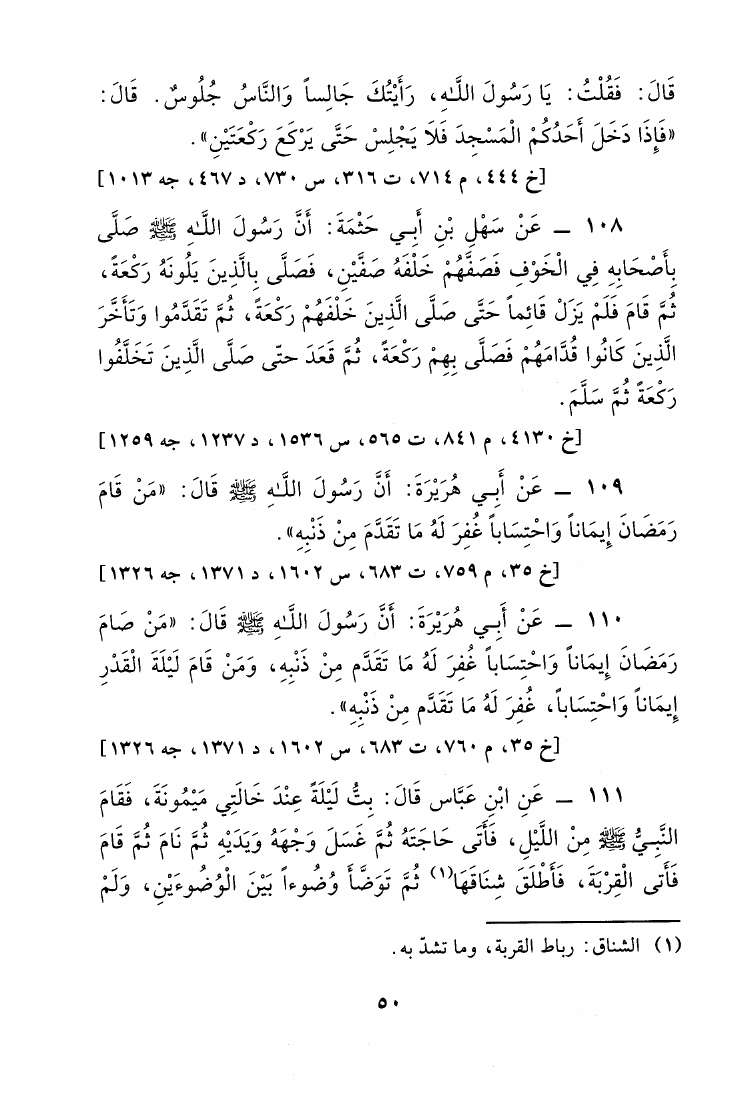 قَالَ: فَقُلْتُ: يَا رَسُولَ اللَّهِ، رَأَيْتُكَ جَالِساً وَالنَّاسُ جُلُوسٌ. قَالَ:
«فَإِذَا دَخَلَ أَحَدُكُمْ الْمَسْجِدَ فَلَا يَجْلِسْ حَتَّى يَرْكَعَ رَكْعَتَيْنِ».
[خ ٤٤٤، م ٧١٤، ت ٣١٦، س ٧٣٠، د ٤٦٧، جه ١٠١٣]
١٠٨ ـ عَنْ سَهْلِ بْنِ أَبِي حَثْمَةَ: أَنَّ رَسُولَ اللَّهِ ﷺ صَلَّى
بِأَصْحَابِهِ فِي الْخَوْفِ فَصَفَّهُمْ خَلْفَهُ صَفَّيْنِ، فَصَلَّى بِالَّذِينَ يَلُونَهُ رَكْعَةً،
ثُمَّ قَامَ فَلَمْ يَزَلْ قَائِماً حَتَّى صَلَّى الَّذِينَ خَلْفَهُمْ رَكْعَةً، ثُمَّ تَقَدَّمُوا وَتَأَخَّرَ
الَّذِينَ كَانُوا قُدَّامَهُمْ فَصَلَّى بِهِمْ رَكْعَةً، ثُمَّ قَعَدَ حتّى صَلَّى الَّذِينَ تَخَلَّفُوا
رَكْعَةً ثُمَّ سَلَّمَ.
[خ ٤١٣٠، م ٨٤١، ت ٥٦٥، س ١٥٣٦، د ١٢٣٧، جه ١٢٥٩]
١٠٩ ـ عَنْ أَبِي هُرَيْرَةَ: أَنَّ رَسُولَ اللَّهِ ﷺ قَالَ: «مَنْ قَامَ
رَمَضَانَ إِيمَاناً وَاحْتِسَاباً غُفِرَ لَهُ مَا تَقَدَّمَ مِنْ ذَنْبِهِ».
[خ ٣٥، م ٧٥٩، ت ٦٨٣، س ١٦٠٢، د ١٣٧١، جه ١٣٢٦]
١١٠ ـ عَنْ أَبِي هُرَيْرَةَ: أَنَّ رَسُولَ اللَّهِ ﷺ قَالَ: «مَن صَامَ
رَمَضَانَ إِيمَاناً وَاحْتِسَاباً غُفِرَ لَهُ مَا تَقَدَّم مِنْ ذَنْبِهِ، وَمَنْ قَامَ لَيْلَةَ الْقَدْرِ
إِيمَاناً وَاحْتِسَاباً، غُفِرَ لَهُ مَا تَقَدَّم مِنْ ذَنْبِهِ».
[خ ٣٥، م ٧٦٠، ت ٦٨٣، س ١٦٠٢، د ١٣٧١، جه ١٣٢٦]
١١١ ـ عَنِ ابْنِ عَبَّاس قَالَ: بِتُّ لَيْلَةً عِنْدَ خَالَتِي مَيْمُونَةَ، فَقَامَ
النَّبِيُّ ﷺ مِنْ اللَّيْلِ، فَأَتَى حَاجَتَهُ ثُمَّ غَسَلَ وَجْهَهُ وَيَدَيْهِ ثُمَّ نَامَ ثُمَّ قَامَ
فَأَتَى الْقِرْبَةَ، فَأَطْلَقَ شِنَاقَهَا(١) ثُمَّ تَوَضَّأَ وُضُوءاً بَيْنَ الْوُضُوءَيْنِ، وَلَمْ
(١) الشناق: رباط القربة، وما تشدّ به.
٥٠